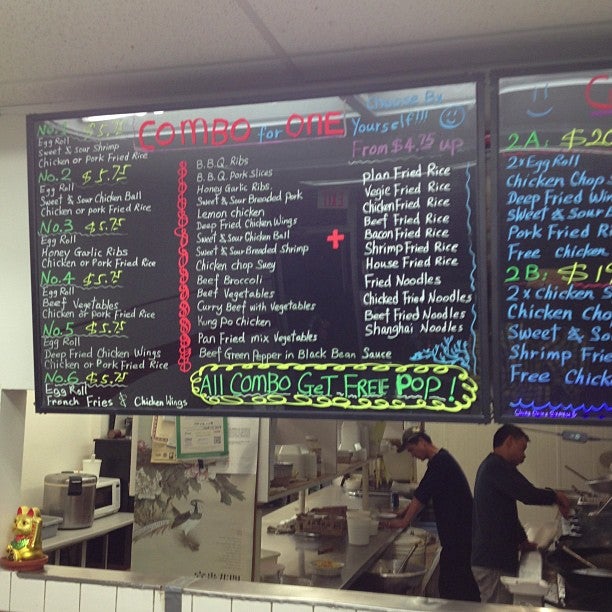 No.1 $5.75
Egg Roll
Sweet & Sour Shrimp
Chicken or Pork Fried Rice
No.2 $5.75
Egg Roll
Sweet & Sour Chicken Ball
Chicken or pork Fried Rice
No.3 $5.75
Egg Roll
Honey Garlic Ribs
Chicken or Pork Fried Rice
No.4 $5.75
Egg Roll
Beef Vegetables
Chicken or pork Fried Rice
No.5 $5.75
Egg Roll
Deep Fried Chicken Wings
Chicken or Pork Fried Rice
No.6 $5.75
Egg Roll
French Fries & Chicken Wings
COMBO for ONE
Choose By
Yourself!!!
From $4.75 up
B.B.Q. Ribs
B.B.Q. Pork Slices
Honey Garlic Ribs
Sweet & Sour Breaded Pork
Lemon chicken
Deep Fried Chicken Wings
Sweet & Sour Chicken Ball
Sweet & Sour Breaded Shrimp
Chicken chop Suey
Beef Broccoli
Beef Vegetables
Curry Beef with Vegetables
Kung Po Chicken
Pan Fried mix Vegetables
Beef Green Pepper in Black Bean Sauce
+
plan Fried Rice
Vegie Fried Rice
Chicken Fried Rice
Beef Fried Rice
Bacon Fried Rice
Shrimp Fried Rice
House Fried Rice
Fried Noodles
Chicked Fried Noodles
Beef Fried Noodles
Shanghai Noodles
All COMBO GeT FREE POP!
2A: $20
2x Egg Roll
Chicken Chop
Deep Fried
Sweet & Sour
Pork Fried
Free Chicken
2B: $1
2x chicken
Chicken Cho
Sweet & So
Shrimp Fri
Free Chick